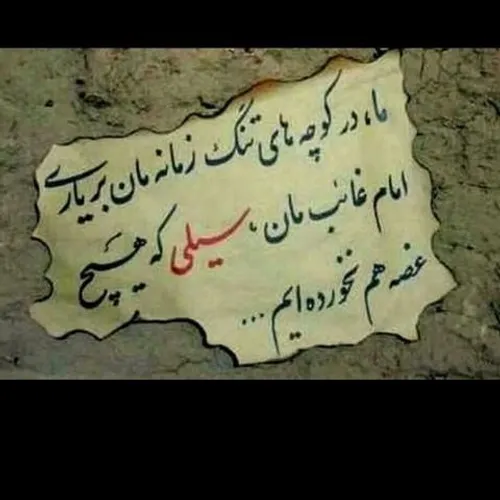 ما، در کوچه های تنگ زمانه مان بر یاری
امام غائب مان، سیلی که هیچ
غصه هم نخورده ایم ...